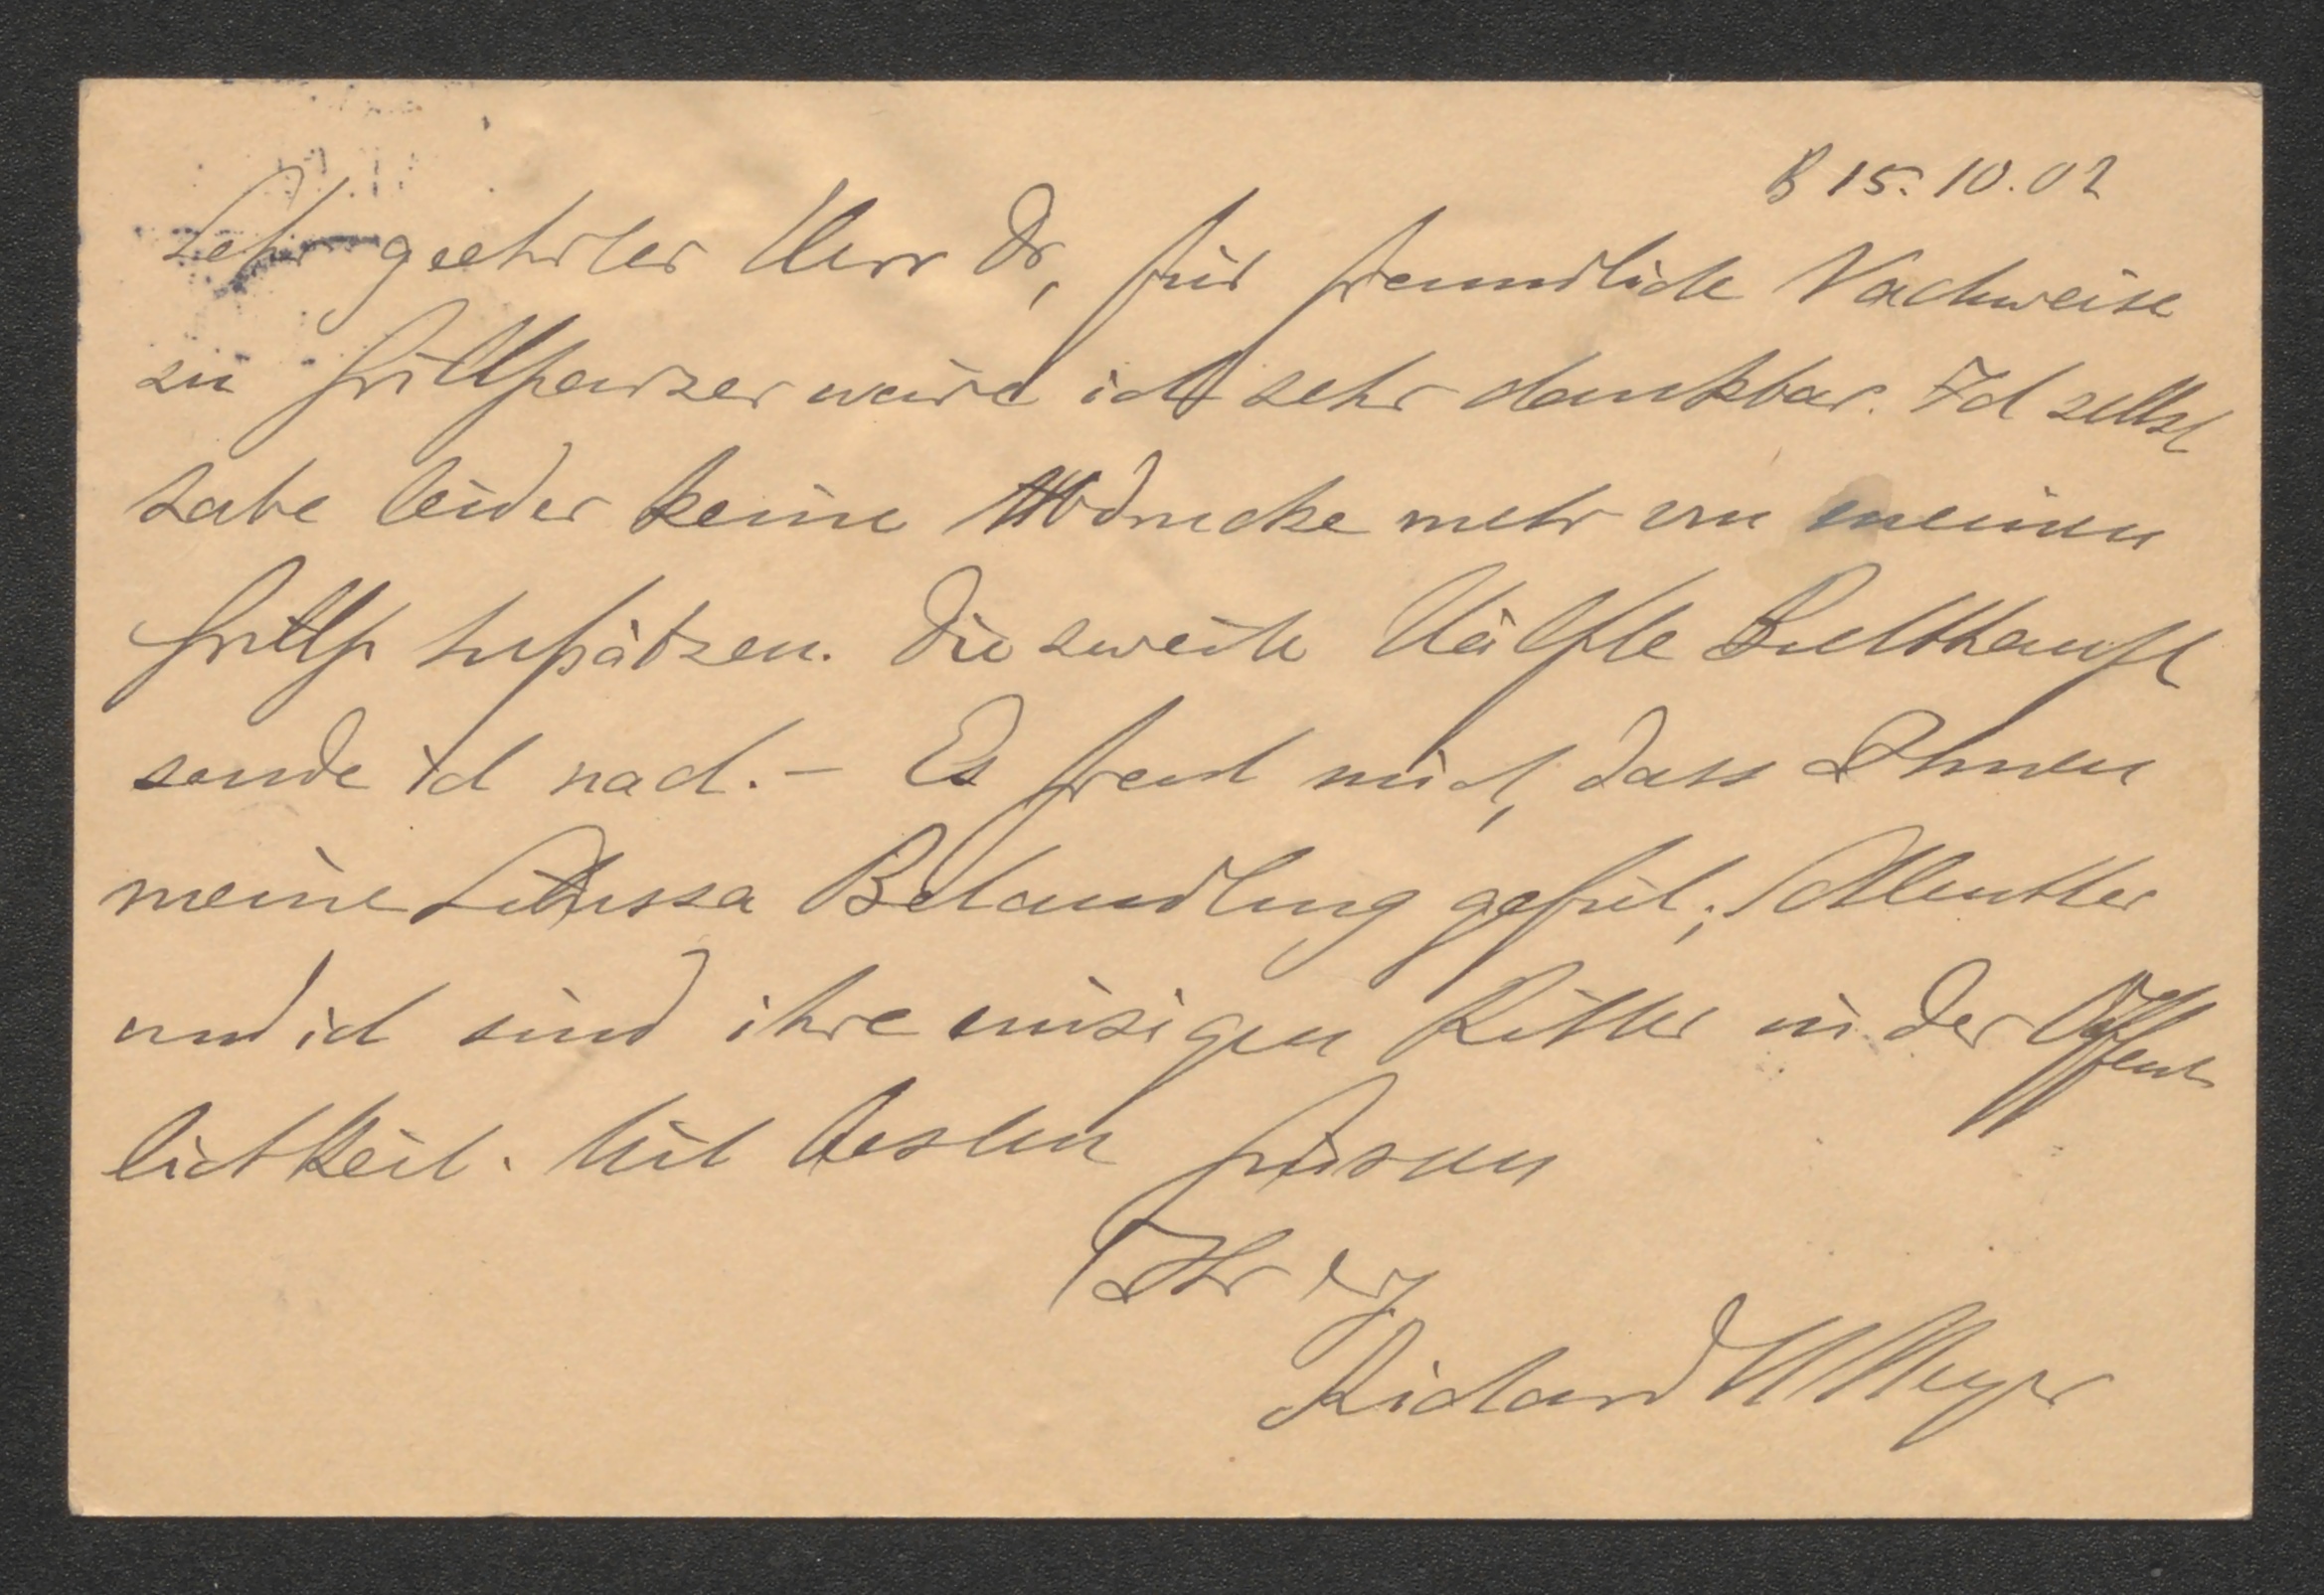 B 15. 10. 02
Sehr geehrter Herr Dr, für freundliche Nachweise
zu Grillparzer wäre ich sehr dankbar. Ich selbst
habe leider keine Abdrucke mehr von meinen
Grillp Aufsätzen. Die zweite Hälfte Bulthaupt
sende ich nach. – Es freut mich, dass Ihnen
meine Libussa Behandlung gefiel; Schlenther
und ich sind ihre einzigen Ritter in der Öffent
lichkeit. Mit besten Grüssen
Ihr erg
Richard M Meyer